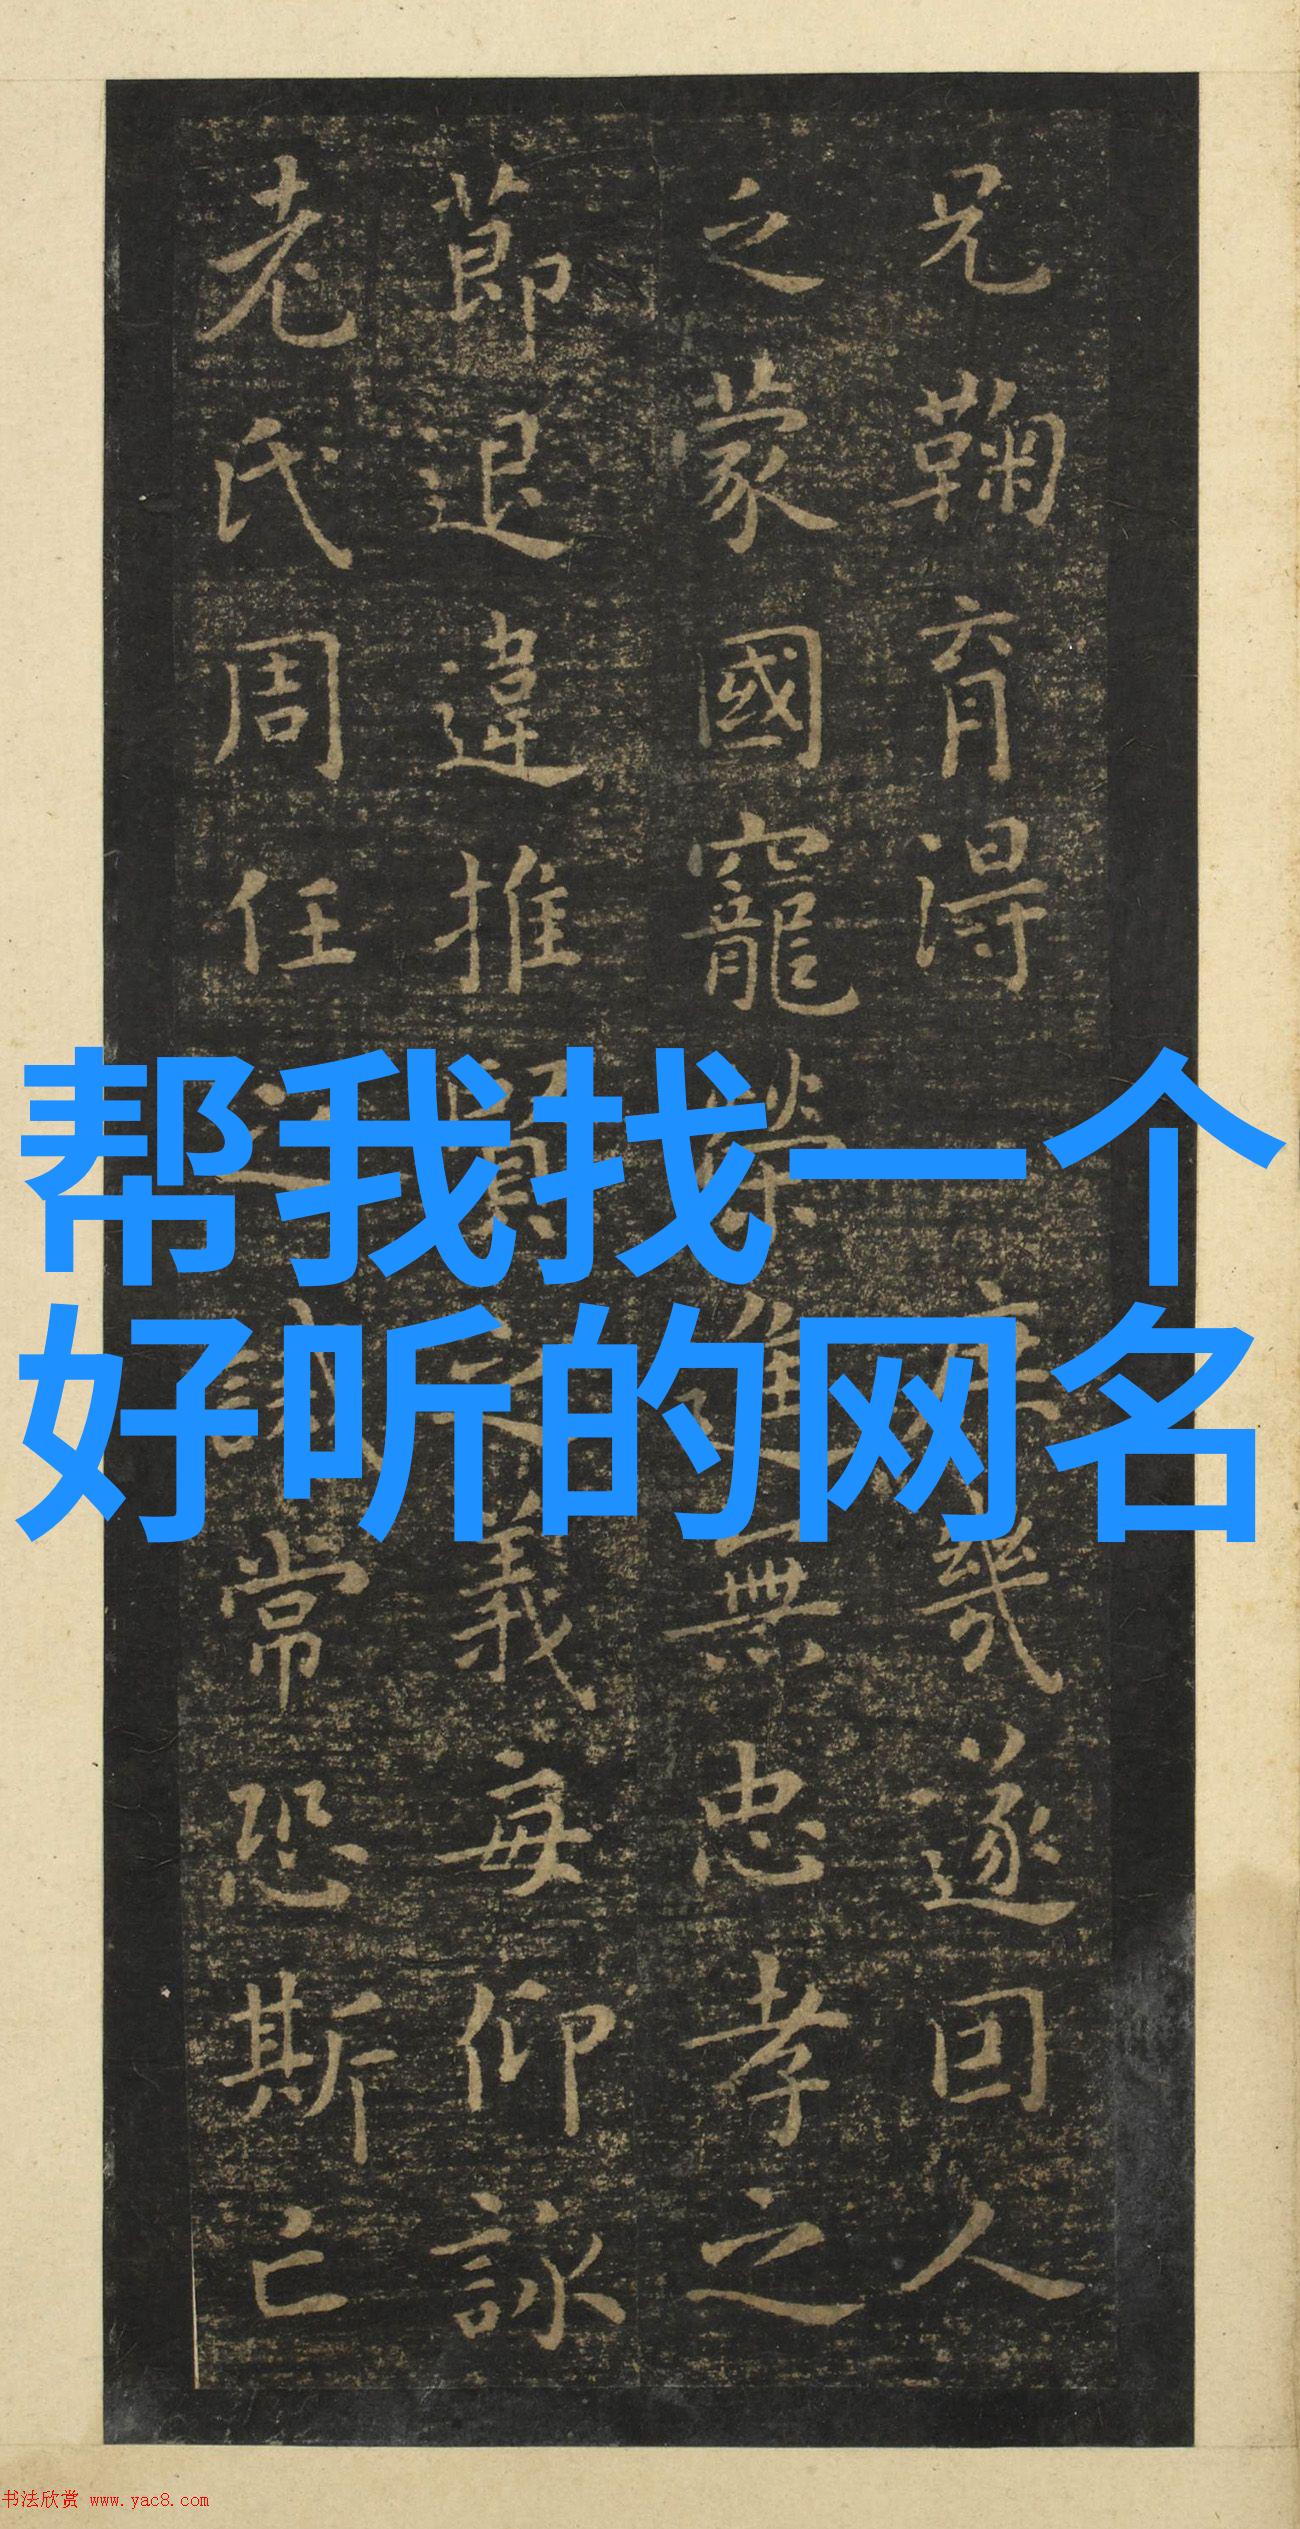 兄鞠育得
幾遂回人
之蒙國寵榮進無忠孝之
莭退違推賢之義每仰詠
老氏周任之誡常恐斯亡
帮我找一个
好听的网名
书法欣赏 www.yac8.com